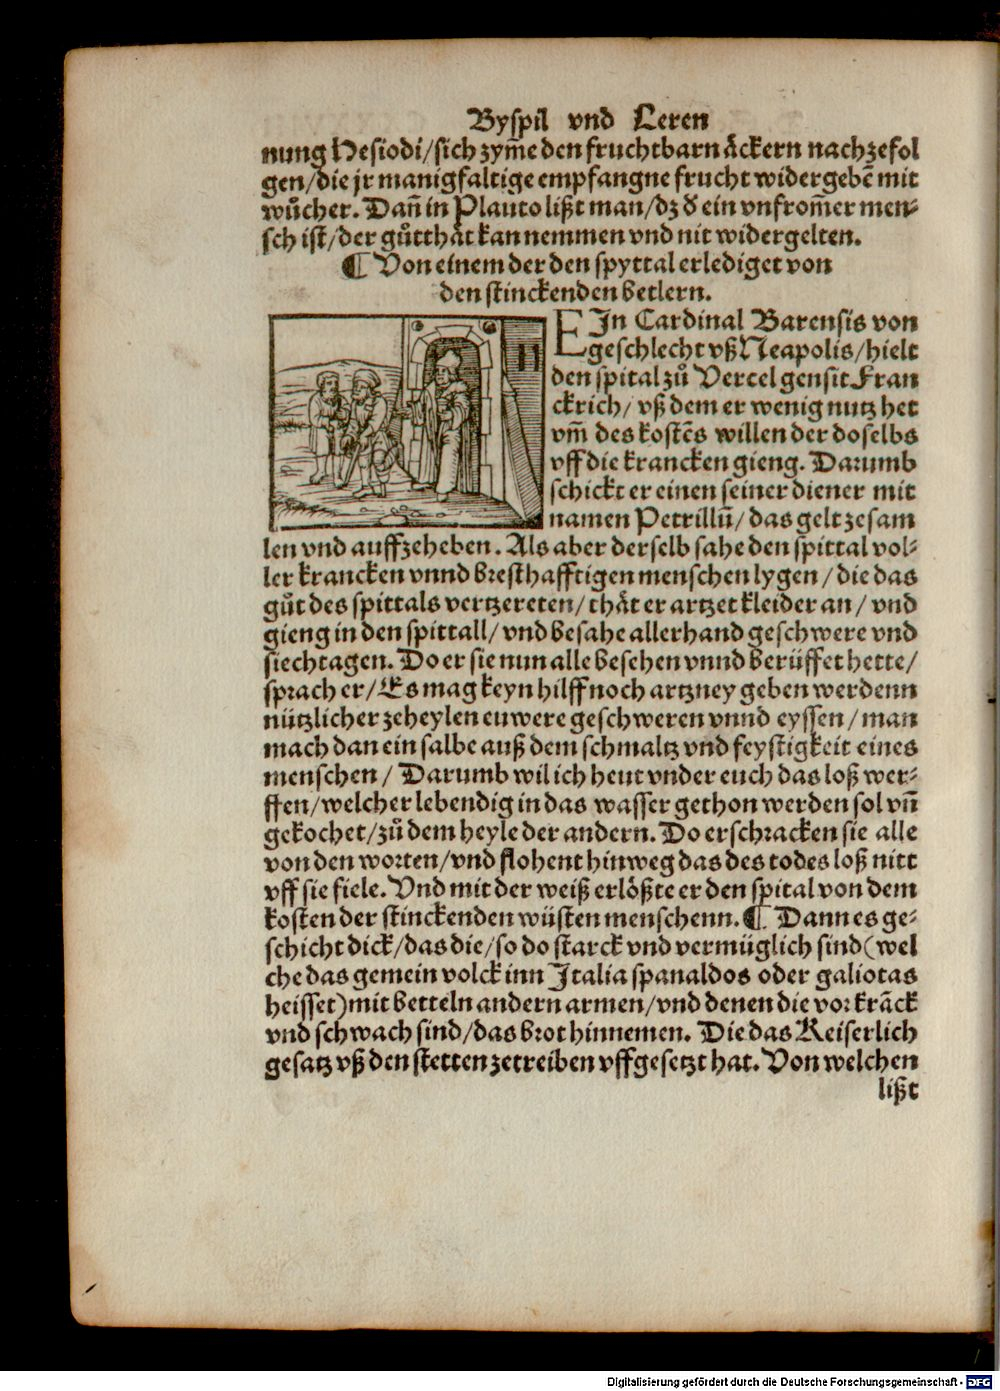 Byspil vnd Leren
nung Hesiodi/sich zym̃e den fruchtbarn åckern nachzefol
gen/die jr manigfaltige empfangne frucht widergebẽ mit
wůcher. Dañ in Plauto lißt man/dz d̕ ein vnfrom̃er men⸗
sch ist/der gůtthåt kan nemmen vnd nit widergelten.
¶ Von einem der den spyttal erlediget von
den stinckenden betlern.
EIn Cardinal Barensis von
geschlecht vß Neapolis/hielt
den spital zů Vercel gensit Fran
ckrich/ vß dem er wenig nutz het
vm̃ des kostẽs willen der doselbs
vff die krancken gieng. Darumb
schickt er einen seiner diener mit
namen Petrillũ/das gelt zesam
len vnd auffzeheben. Als aber derselb sahe den spittal vol⸗
ler krancken vnnd bresthafftigen menschen lygen/die das
gůt des spittals vertzereten/thåt er artzet kleider an/vnd
gieng in den spittall/vnd besahe allerhand geschwere vnd
siechtagen. Do er sie nun alle besehen vnnd berüffet hette/
sprach er/Es mag keyn hilff noch artzney geben werdenn
nützlicher zeheylen euwere geschweren vnnd eyssen/man
mach dan ein salbe auß dem schmaltz vnd feystigkeit eines
menschen/ Darumb wil ich heut vnder euch das loß wer⸗
ffen/welcher lebendig in das wasser gethon werden sol vñ
gekochet/zů dem heyle der andern. Do erschracken sie alle
von den worten/vnd flohent hinweg das des todes loß nitt
vff sie fiele. Vnd mit der weiß erlößte er den spital von dem
kosten der stinckenden wüsten menschenn. ¶ Dann es ge⸗
schicht dick/das die/so do starck vnd vermüglich sind(wel
che das gemein volck inn Italia spanaldos oder galiotas
heisset)mit betteln andern armen/vnd denen die vor krãck
vnd schwach sind/das brot hinnemen. Die das Keiserlich
gesatz vß den stetten zetreiben vffgesetzt hat. Von welchen
lißt
Digitalisierung gefördert durch die Deutsche Forschungsgemeinschaft - DFG